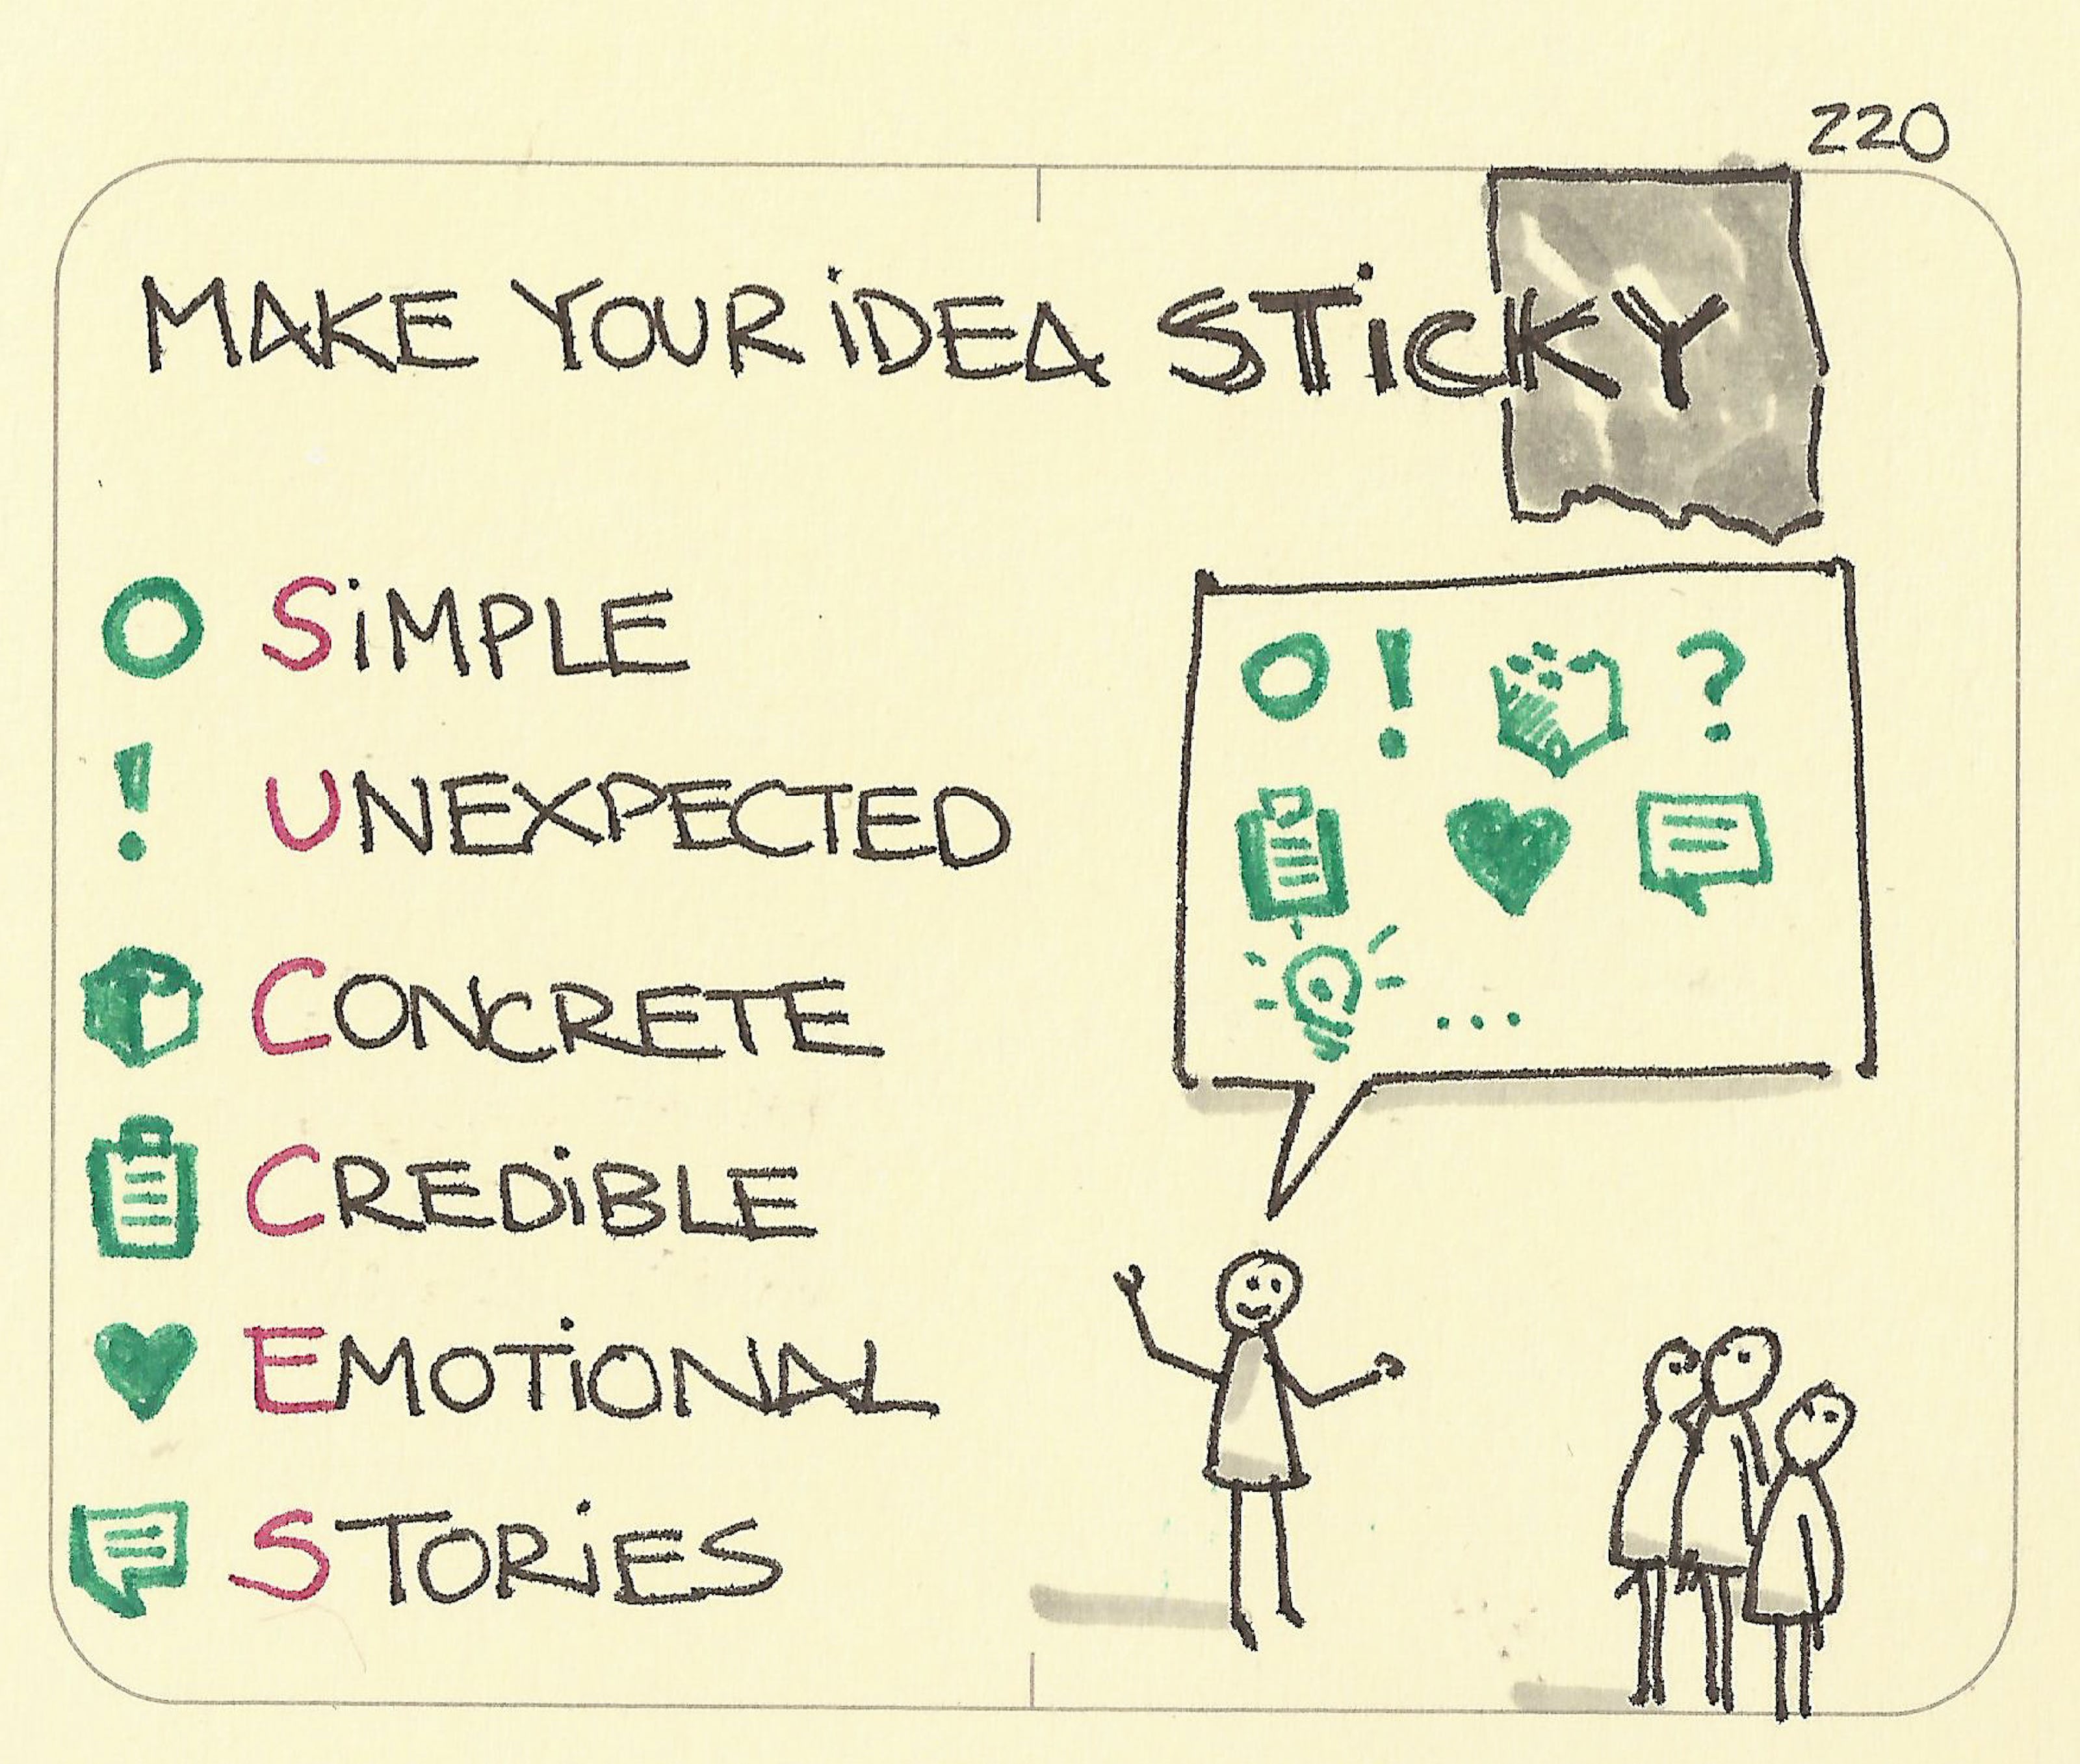 220
MAKE YOUR iDEA STiCKY
SiMPLE
UNEXPECTED
CONCRETE
CREDiBLE
EMOTiONAL
STORiES
! ?
...